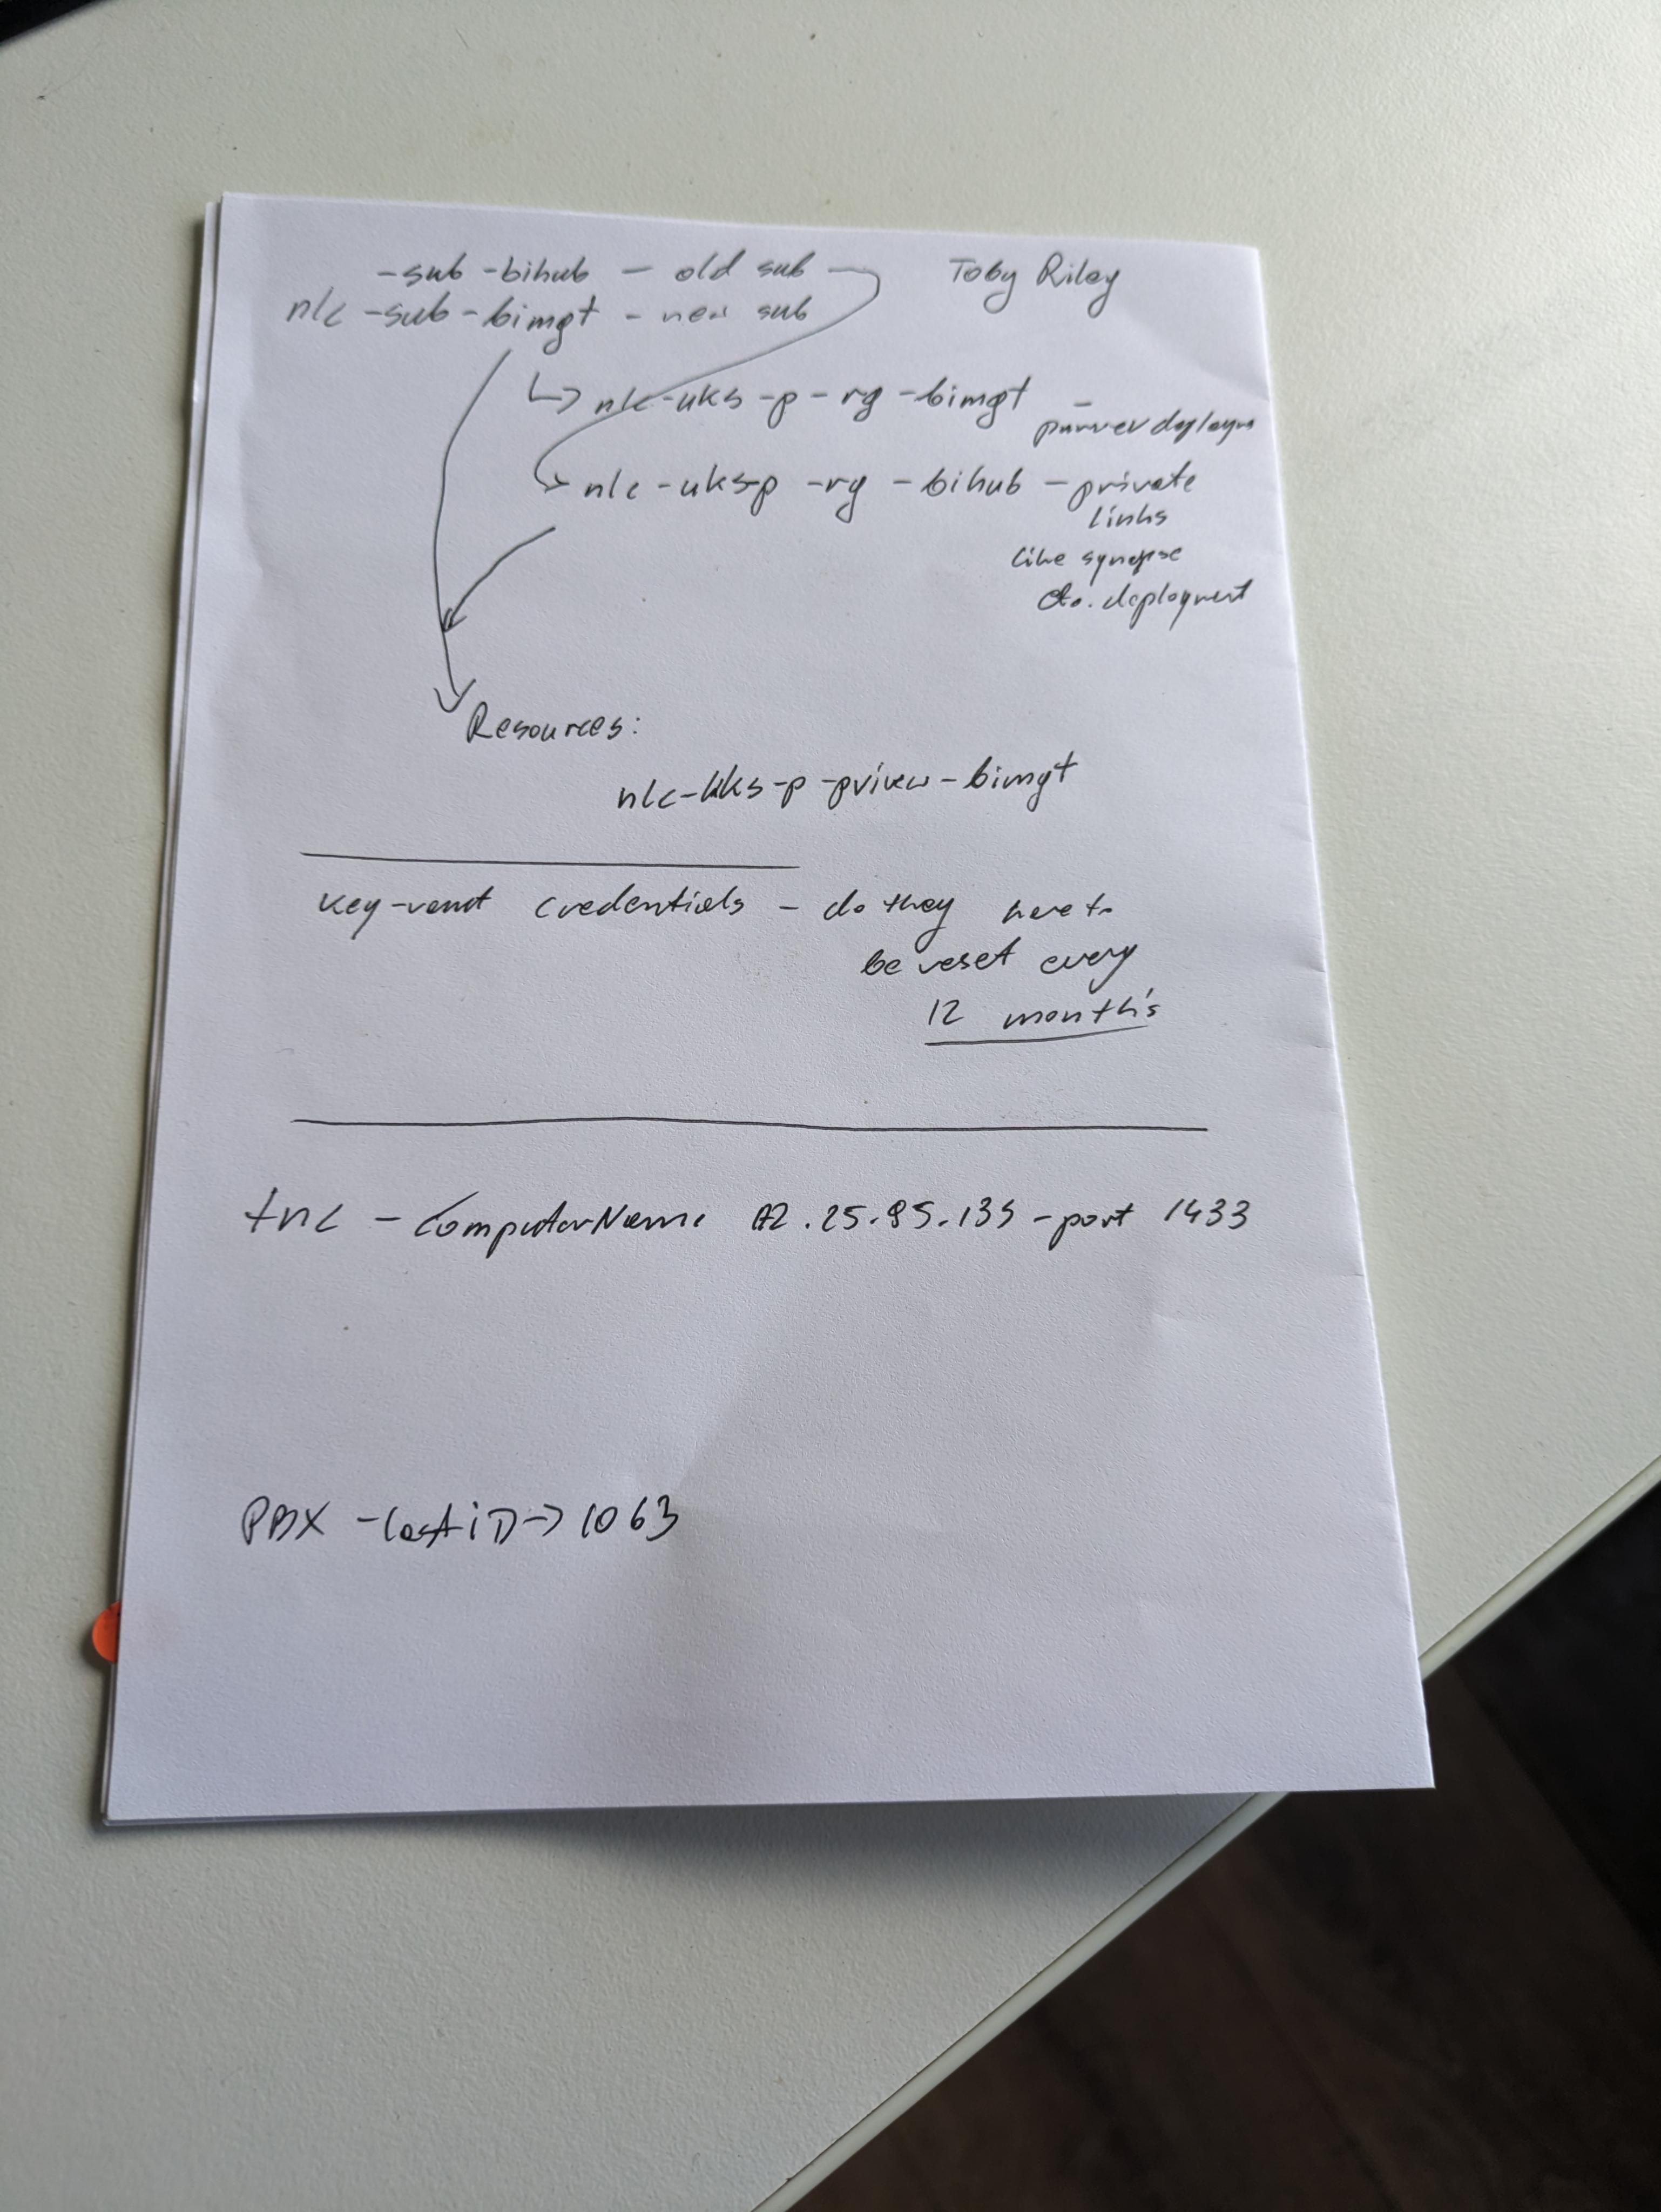 -sub-bihub - old sub
Toby Riley
nlc-sub-bimgt - new sub
nlc-uks-p-rg-bimgt -
deploym
nlc-uks-p-rg-bihub - private
links
like synapse
deployment
Resources:
nlc-uks-p-pview-bimgt
key-vault credentials - do they have to
be reset every
12 months
tnc -ComputerName .25.85.135 -port 1433
PBX - last iD → 1063